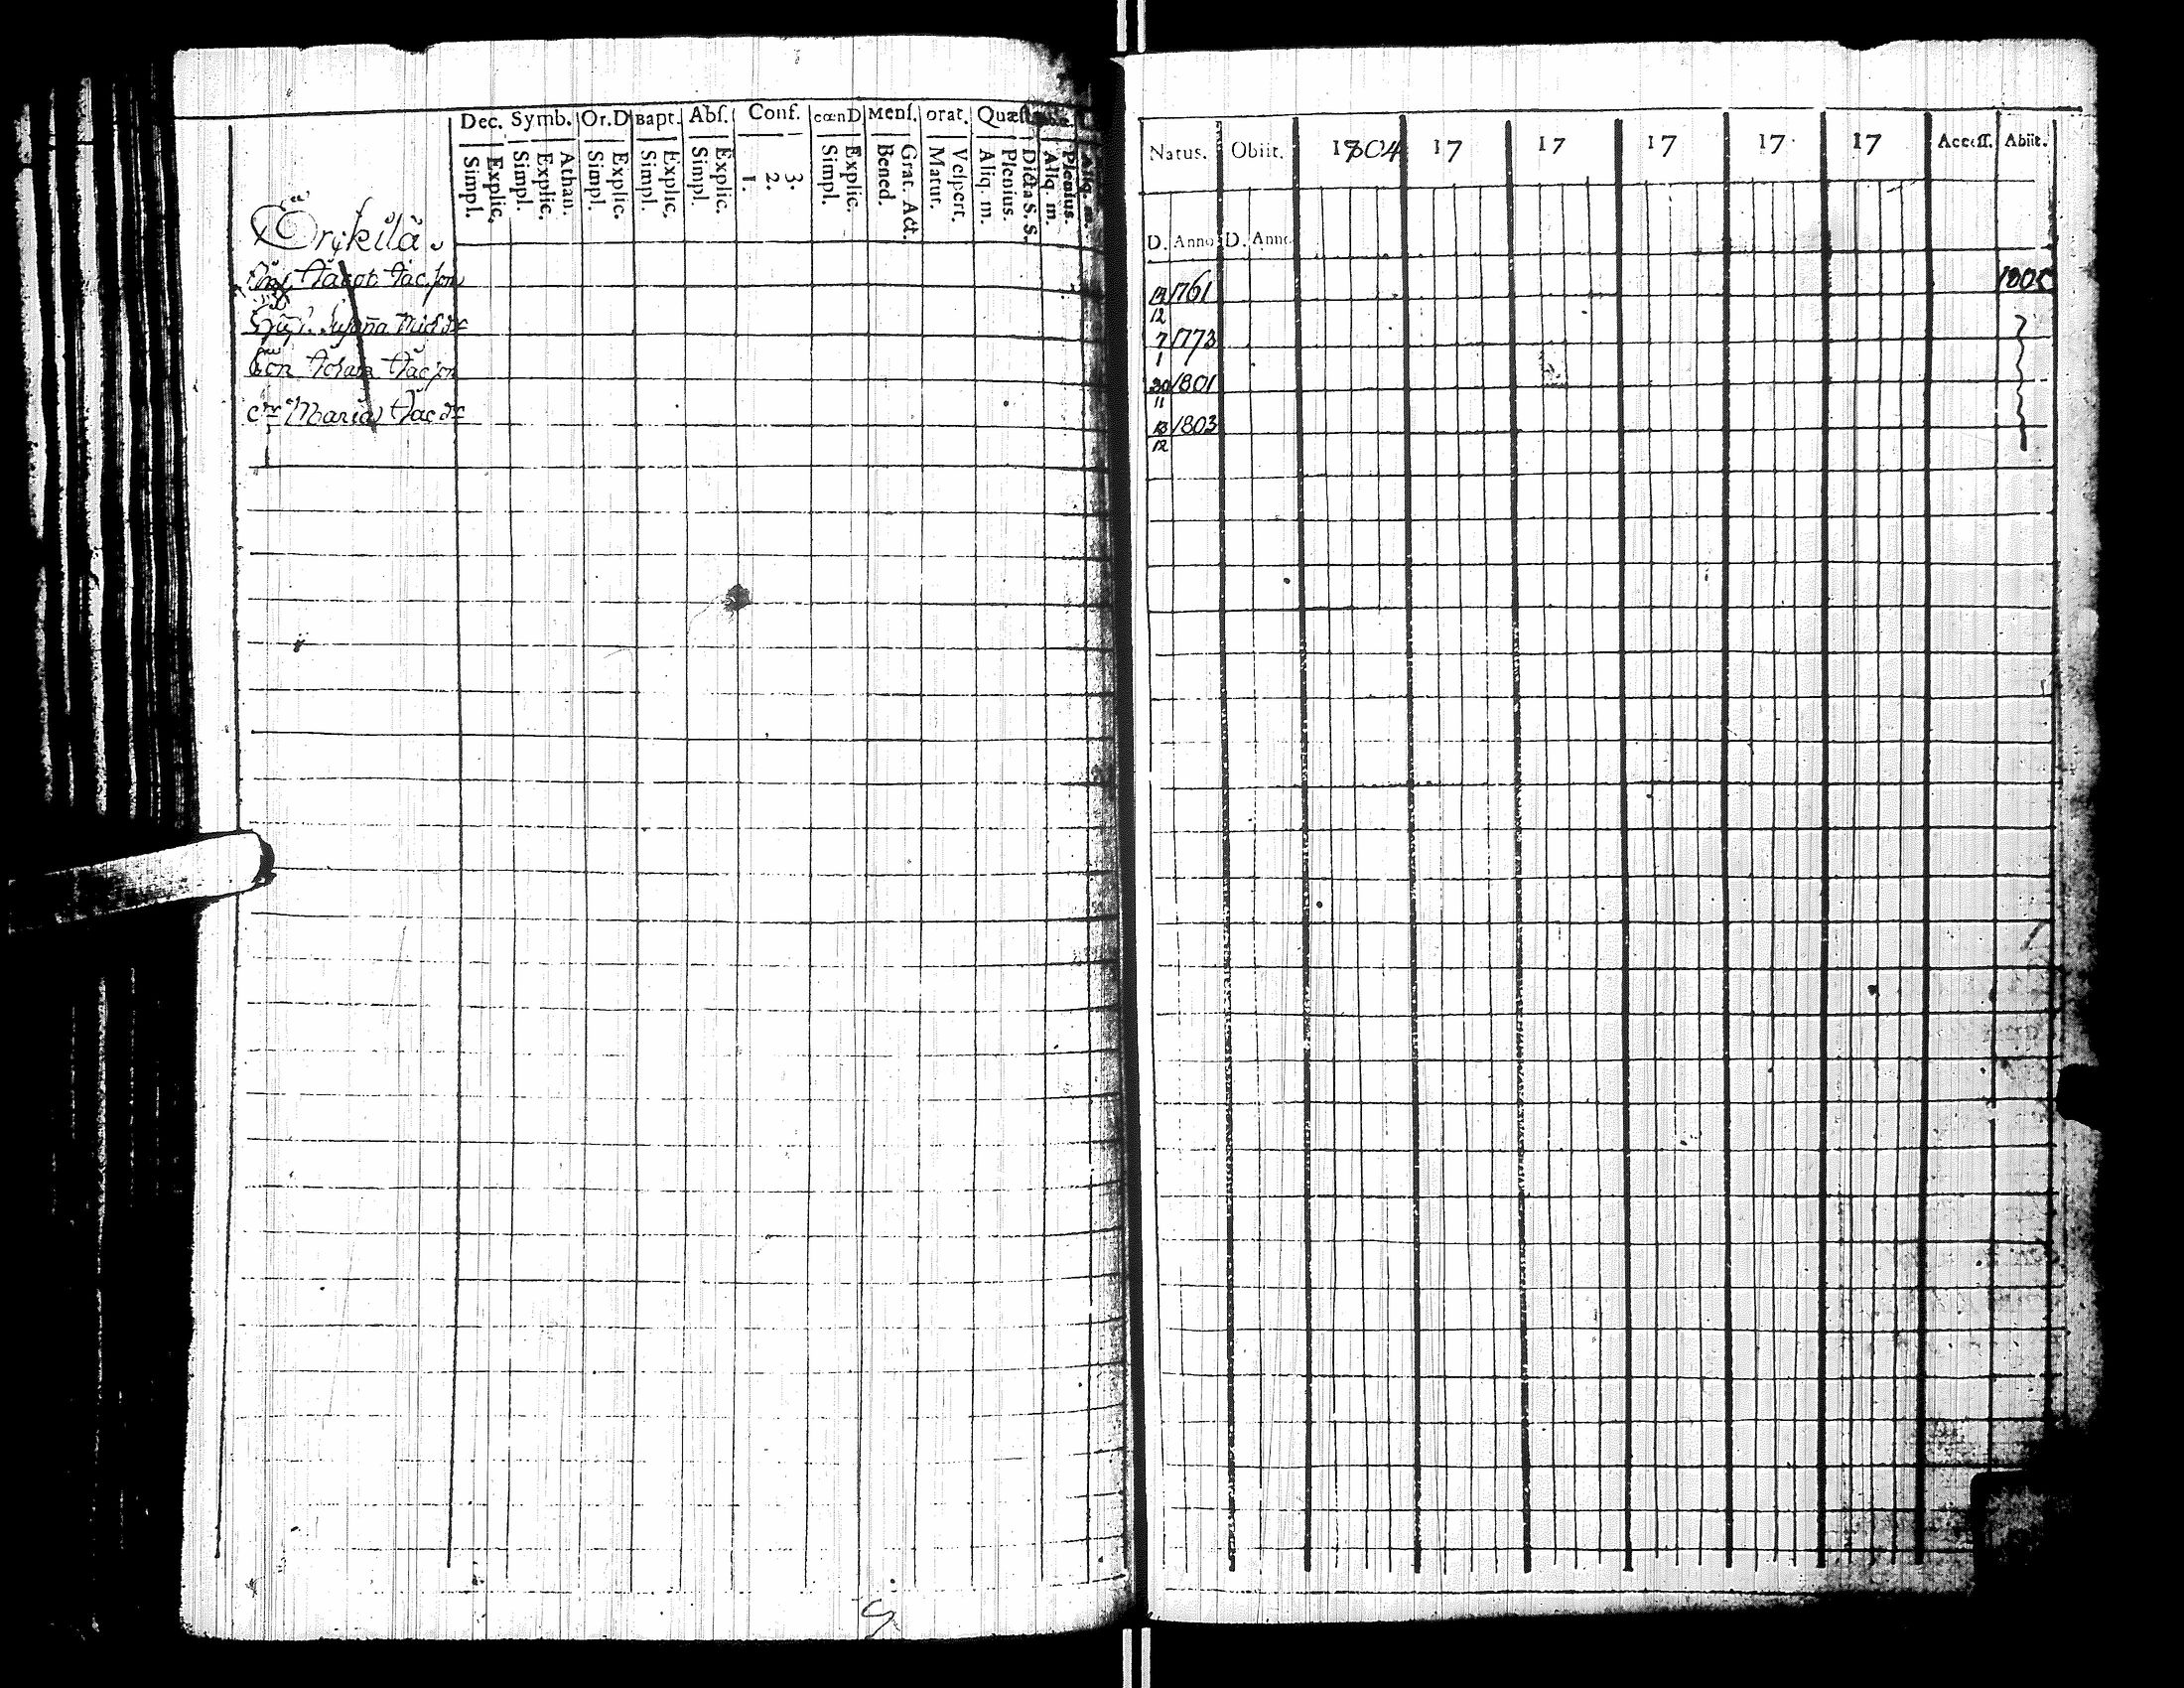 Dec. Symb. Or.D Bapt. Abſ. Conf. cœnD Menſ. orat. Quæſt
Simpl. Explic. Simpl. Explic. Athan. Simpl. Explic. Simpl. Explic. Simpl. Explic. 1. 2. 3. Simpl. Explic. Bened. Grat. Act. Matut. Veſpert. Aliq. m. Plenius. Dicta S. S. Aliq. m. Plenius. Aliq. m.
Jacob Jacſon
Suſaña Mich dr
Johan Jacſon
Maria Jac dr
Natus. Obiit. 1804 17 17 17 17 17 Acceſſ. Abiit.
D. Anno D. Anno
1761
12
7 1773
1
30 1801
11
13 1803
12